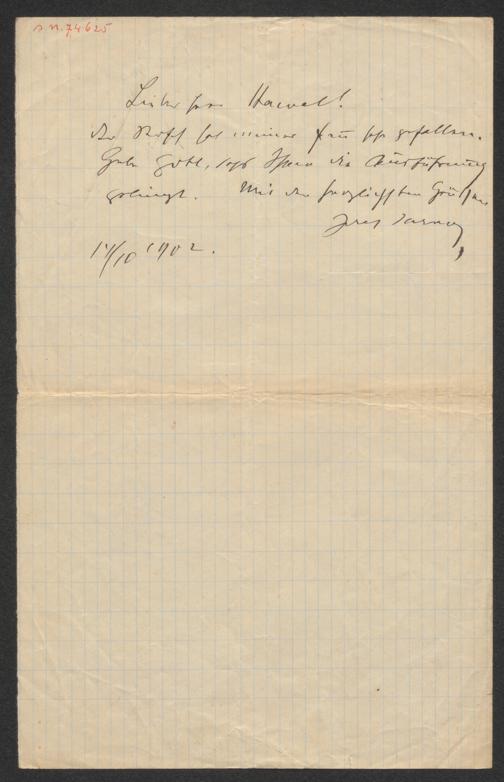 A.N. 74625
Lieber Herr Hawel!
Der Stoff hat meiner Frau sehr gefallen.
Gebe Gott, daß Ihnen die Ausführung
gelingt. Mit den herzlichsten Grüßen
Ihres
/10 1902.